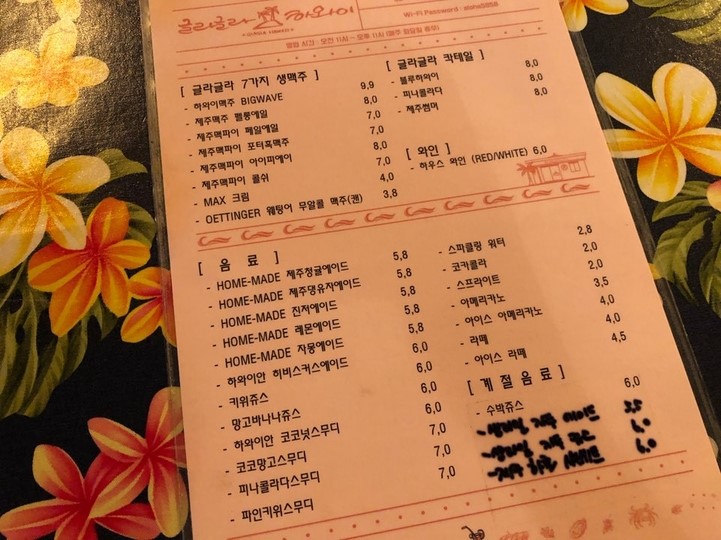 글라글라 하와이
GULLA GULLA HAWAII
Wi-Fi Password : aloha5858
영업 시간 : 오전 11시 ~ 오후 11시 (매주 화요일 휴무)
[ 글라글라 7가지 생맥주 ]
- 하와이맥주 BIGWAVE 9,9
- 제주맥주 펠롱에일 8,0
- 제주맥파이 페일에일 7,0
- 제주맥파이 포터흑맥주 7,0
- 제주맥파이 아이피에이 8,0
- 제주맥파이 쾰쉬 7,0
- MAX 크림 4,0
- OETTINGER 웨팅어 무알콜 맥주(캔) 3,8
[ 글라글라 칵테일 ]
- 블루하와이 8,0
- 피나콜라다 8,0
- 제주썸머 8,0
[ 와인 ]
- 하우스 와인 (RED/WHITE) 6,0
[ 음 료 ]
- HOME-MADE 제주청귤에이드 5,8
- HOME-MADE 제주댕유자에이드 5,8
- HOME-MADE 진저에이드 5,8
- HOME-MADE 레몬에이드 5,8
- HOME-MADE 자몽에이드 5,8
- 하와이안 히비스커스에이드 6,0
- 키위쥬스 6,0
- 망고바나나쥬스 6,0
- 하와이안 코코넛스무디 6,0
- 코코망고스무디 7,0
- 피나콜라다스무디 7,0
- 파인키위스무디 7,0
- 스파클링 워터 2,8
- 코카콜라 2,0
- 스프라이트 2,0
- 아메리카노 3,5
- 아이스 아메리카노 4,0
- 라떼 4,0
- 아이스 라떼 4,5
[ 계 절 음 료 ]
- 수박쥬스 6,0